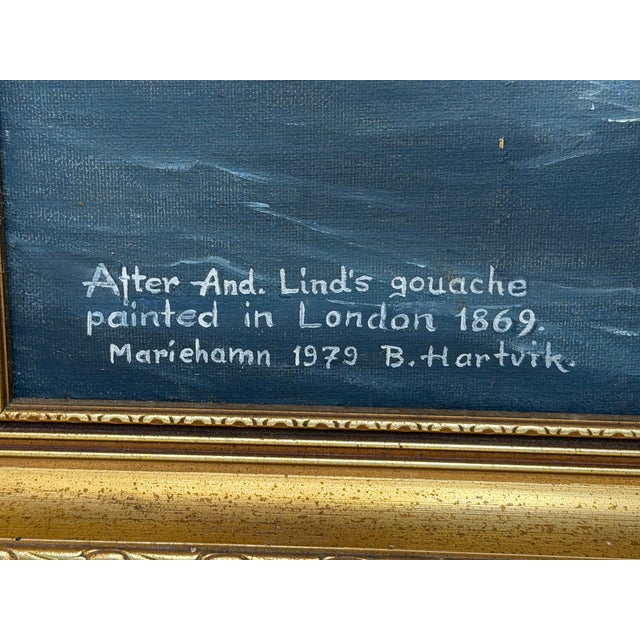 After And. Lind's gouache
painted in London 1869.
Mariehamn 1979 B. Hartvik.